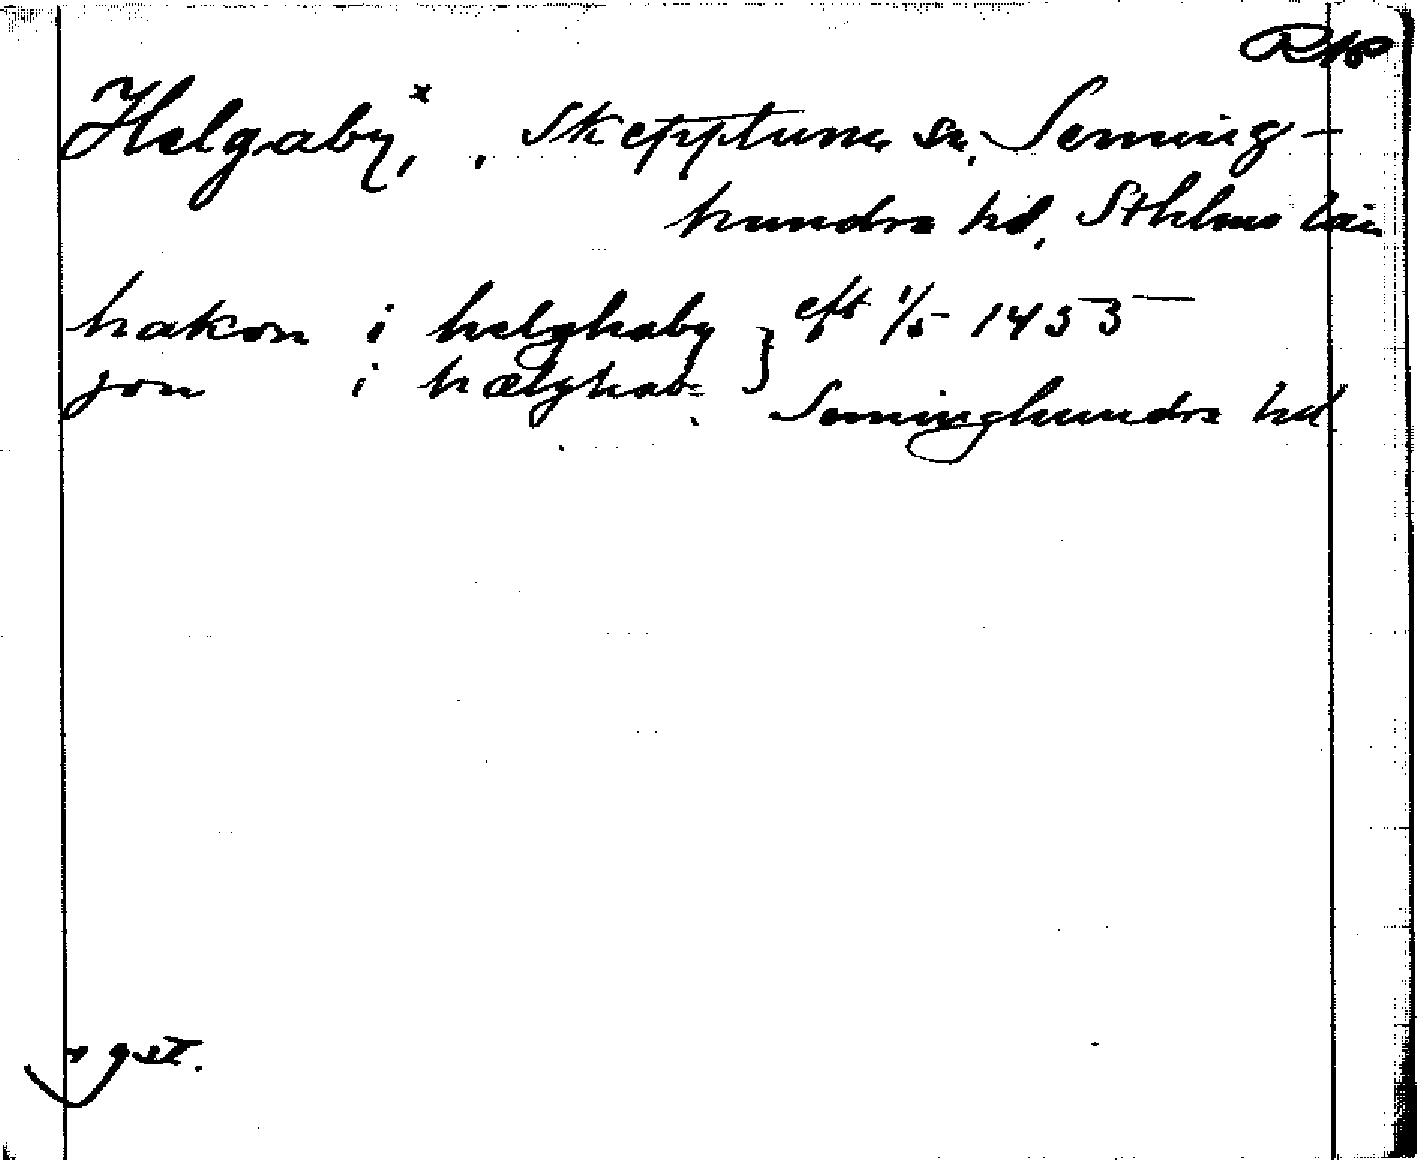 Helgaby,ˣ , Skepptuna sn, Seming-
hundra hd, Sthlms län
hakon i helghaby } eft 1/5 1453
jon i hælghab=
Seminghundra hd